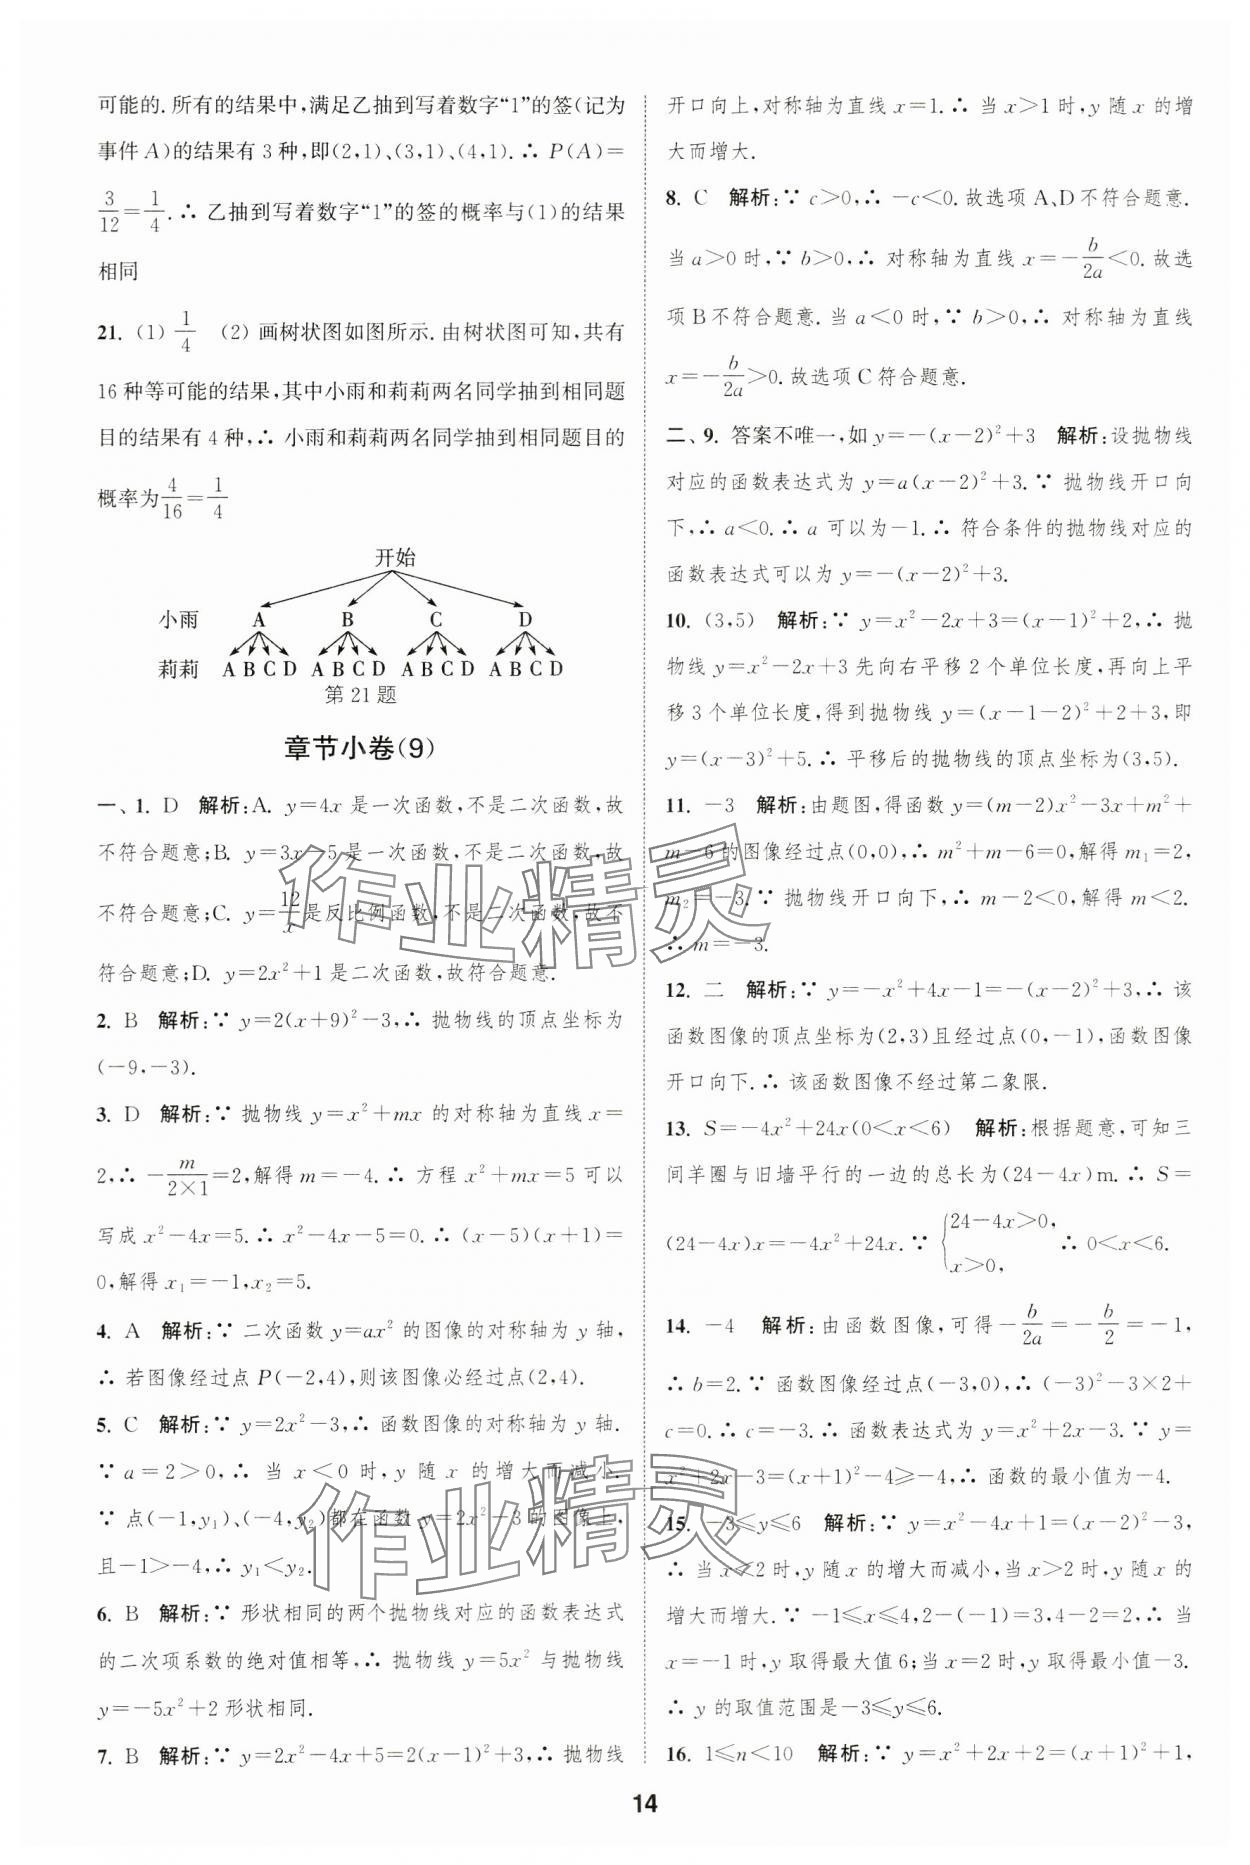 可能的.所有的结果中,满足乙抽到写着数字“1”的签(记为
事件 A)的结果有 3 种,即(2,1)、(3,1)、(4,1).∴ P(A)=
3/12=1/4.∴ 乙抽到写着数字“1”的签的概率与(1)的结果
相同
21. (1) 1/4 (2) 画树状图如图所示.由树状图可知,共有
16 种等可能的结果,其中小雨和莉莉两名同学抽到相同题
目的结果有 4 种,∴ 小雨和莉莉两名同学抽到相同题目的
概率为4/16=1/4
开始
小雨 A B C D
莉莉 A B C D A B C D A B C D A B C D
第 21 题
章节小卷(9)
一、1. D 解析:A. y=4x 是一次函数,不是二次函数,故
不符合题意;B. y=3x-5 是一次函数,不是二次函数,故
不符合题意;C. y=12/x是反比例函数,不是二次函数,故不
符合题意;D. y=2x²+1 是二次函数,故符合题意.
2. B 解析:∵ y=2(x+9)²-3,∴ 抛物线的顶点坐标为
(-9,-3).
3. D 解析:∵ 抛物线 y=x²+mx 的对称轴为直线 x=
2,∴ -m/(2×1)=2,解得 m=-4.∴ 方程 x²+mx=5 可以
写成 x²-4x=5.∴ x²-4x-5=0.∴ (x-5)(x+1)=
0,解得 x₁=-1,x₂=5.
4. A 解析:∵ 二次函数 y=ax² 的图像的对称轴为 y 轴,
∴ 若图像经过点 P(-2,4),则该图像必经过点(2,4).
5. C 解析:∵ y=2x²-3,∴ 函数图像的对称轴为 y 轴.
∵ a=2>0,∴ 当 x<0 时,y 随 x 的增大而减小.
∵ 点(-1,y₁)、(-4,y₂)都在函数 y=2x²-3 的图像上,
且-1>-4,∴ y₁<y₂.
6. B 解析:∵ 形状相同的两个抛物线对应的函数表达式
的二次项系数的绝对值相等,∴ 抛物线 y=5x² 与抛物线
y=-5x²+2 形状相同.
7. B 解析:∵ y=2x²-4x+5=2(x-1)²+3,∴ 抛物线
开口向上,对称轴为直线 x=1.∴ 当 x>1 时,y 随 x 的增
大而增大.
8. C 解析:∵ c>0,∴ -c<0.故选项 A、D 不符合题意.
当 a>0 时,∵ b>0,∴ 对称轴为直线 x=-b/2a<0.故选
项 B 不符合题意.当 a<0 时,∵ b>0,∴ 对称轴为直线
x=-b/2a>0.故选项 C 符合题意.
二、9. 答案不唯一,如 y=-(x-2)²+3 解析:设抛物线
对应的函数表达式为 y=a(x-2)²+3.∵ 抛物线开口向
下,∴ a<0.∴ a 可以为-1.∴ 符合条件的抛物线对应的
函数表达式可以为 y=-(x-2)²+3.
10. (3,5) 解析:∵ y=x²-2x+3=(x-1)²+2,∴ 抛
物线 y=x²-2x+3 先向右平移 2 个单位长度,再向上平
移 3 个单位长度,得到抛物线 y=(x-1-2)²+2+3,即
y=(x-3)²+5.∴ 平移后的抛物线的顶点坐标为(3,5).
11. -3 解析:由题图,得函数 y=(m-2)x²-3x+m²+
m-6 的图像经过点(0,0),∴ m²+m-6=0,解得 m₁=2,
m₂=-3.∵ 抛物线开口向下,∴ m-2<0,解得 m<2.
∴ m=-3.
12. 二 解析:∵ y=-x²+4x-1=-(x-2)²+3,∴ 该
函数图像的顶点坐标为(2,3)且经过点(0,-1),函数图像
开口向下.∴ 该函数图像不经过第二象限.
13. S=-4x²+24x(0<x<6) 解析:根据题意,可知三
间羊圈与旧墙平行的一边的总长为(24-4x)m.∴ S=
(24-4x)x=-4x²+24x.∵ {24-4x>0, x>0, ∴ 0<x<6.
14. -4 解析:由函数图像,可得-b/2a=-b/2=-1,
∴ b=2.∵ 函数图像经过点(-3,0),∴ (-3)²-3×2+
c=0.∴ c=-3.∴ 函数表达式为 y=x²+2x-3.∵ y=
x²+2x-3=(x+1)²-4≥-4,∴ 函数的最小值为-4.
15. -3≤y≤6 解析:∵ y=x²-4x+1=(x-2)²-3,
∴ 当 x<2 时,y 随 x 的增大而减小,当 x>2 时,y 随 x 的
增大而增大.∵ -1≤x≤4,2-(-1)=3,4-2=2,∴ 当
x=-1 时,y 取得最大值 6;当 x=2 时,y 取得最小值-3.
∴ y 的取值范围是-3≤y≤6.
16. 1≤n<10 解析:∵ y=x²+2x+2=(x+1)²+1,
14
作业精灵
作业精灵